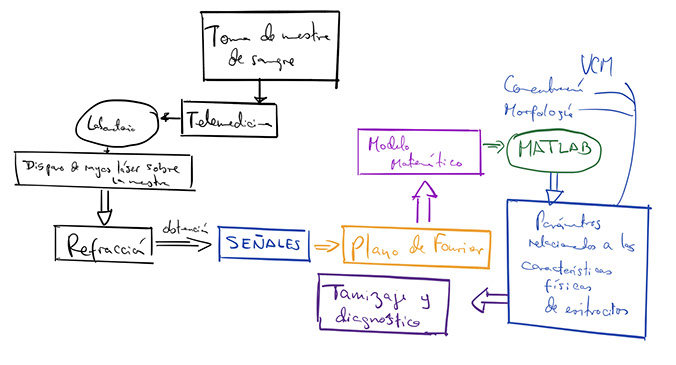 Toma de muestra
de sangre
Telemedicina
Laboratorio
Disparo de rayos láser sobre
la muestra
Refracción
obtención
SEÑALES
Plano de Fourier
Modelo
Matemático
MATLAB
VCM
Concentración
Morfología
Parámetros
relacionado a las
características
físicas
de eritrocitos
Tamizaje y
diagnóstico